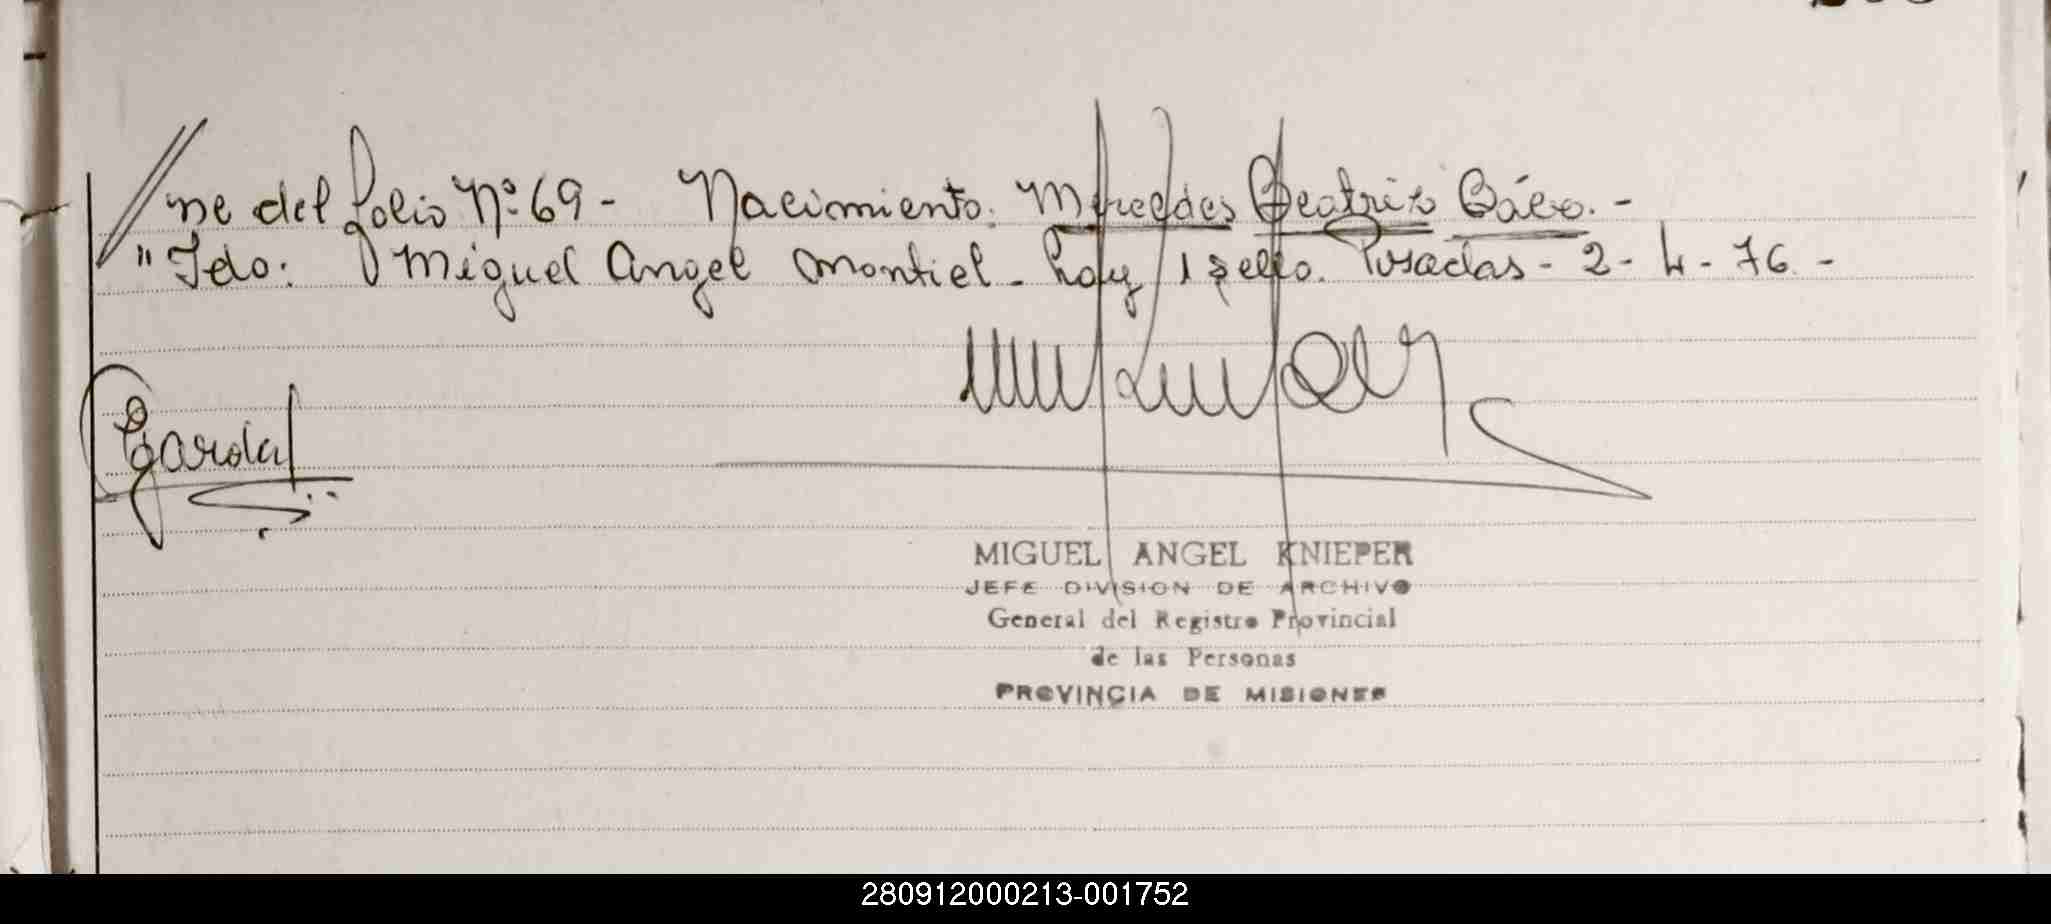 //ne del folio Nº 69 - Nacimiento. Mercedes Beatriz Báez. -
"Fdo: Miguel Angel Montiel - hay 1 sello. Posadas - 2 - 4 - 76 -
MIGUEL ANGEL KNIEPER
JEFE DIVISION DE ARCHIVO
General del Registro Provincial
de las Personas
PROVINCIA DE MISIONES
280912000213-001752